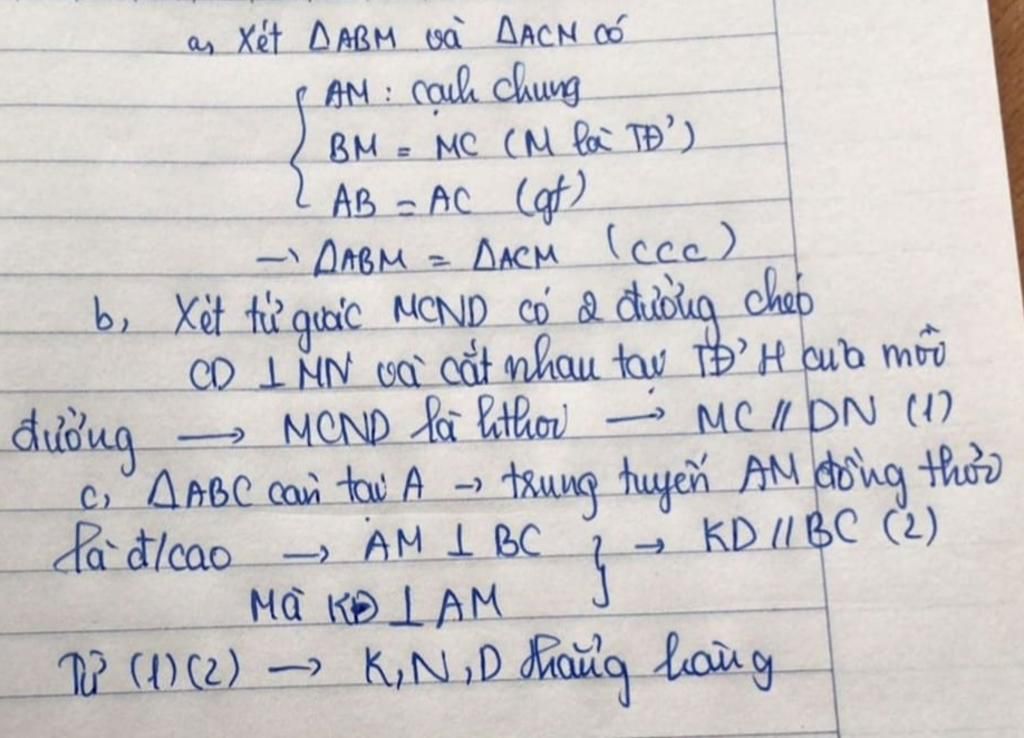 a, Xét ΔABM và ΔACN có
AM : cạnh chung
BM = MC (M là TĐ')
AB = AC (gt)
→ ΔABM = ΔACM (ccc)
b, Xét tứ giác MCND có 2 đường chéo
CD ⊥ MN và cắt nhau tại TĐ' H của mỗi
đường → MCND là hthoi → MC // DN (1)
c, ΔABC cân tại A → trung tuyến AM đồng thời
là đ/cao → AM ⊥ BC } → KD // BC (2)
Mà KD ⊥ AM
Từ (1)(2) → K,N,D thẳng hàng